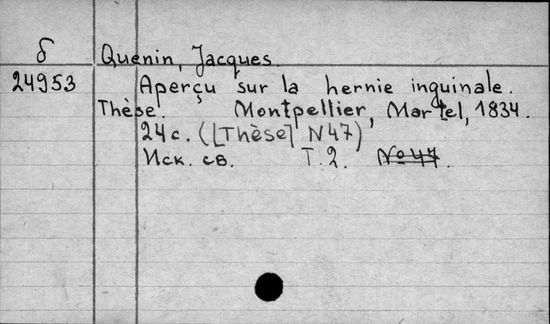 δ Quenin, Jacques.
24953 Aperçu sur la hernie inguinale.
Thèse. Montpellier, Martel, 1834.
24 с. ([Thèse] N47)
Иск. св. Т. 2. № 47.